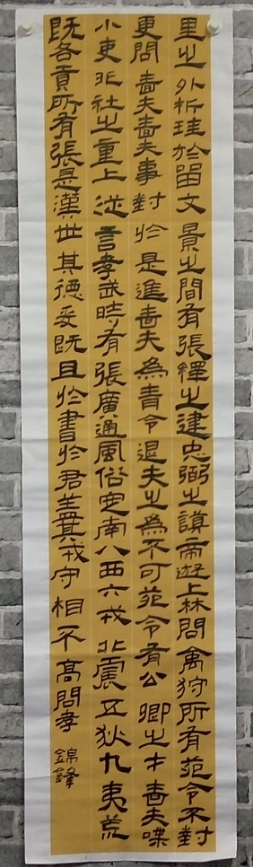 里之外析珪於留文景之間有張釋之建忠弼之謨帝遊上林問禽狩所有苑令不對
更問嗇夫嗇夫事對於是進嗇夫為青令退夫之為不可苑令有公卿之才嗇夫喋
小吏非社之重上從言孝武時有張廣通風俗定南八西六戎北震五狄九夷荒
既各貢所有張是漢世其德妥既且於書於君盖其戎守相不高問孝
錦鋒